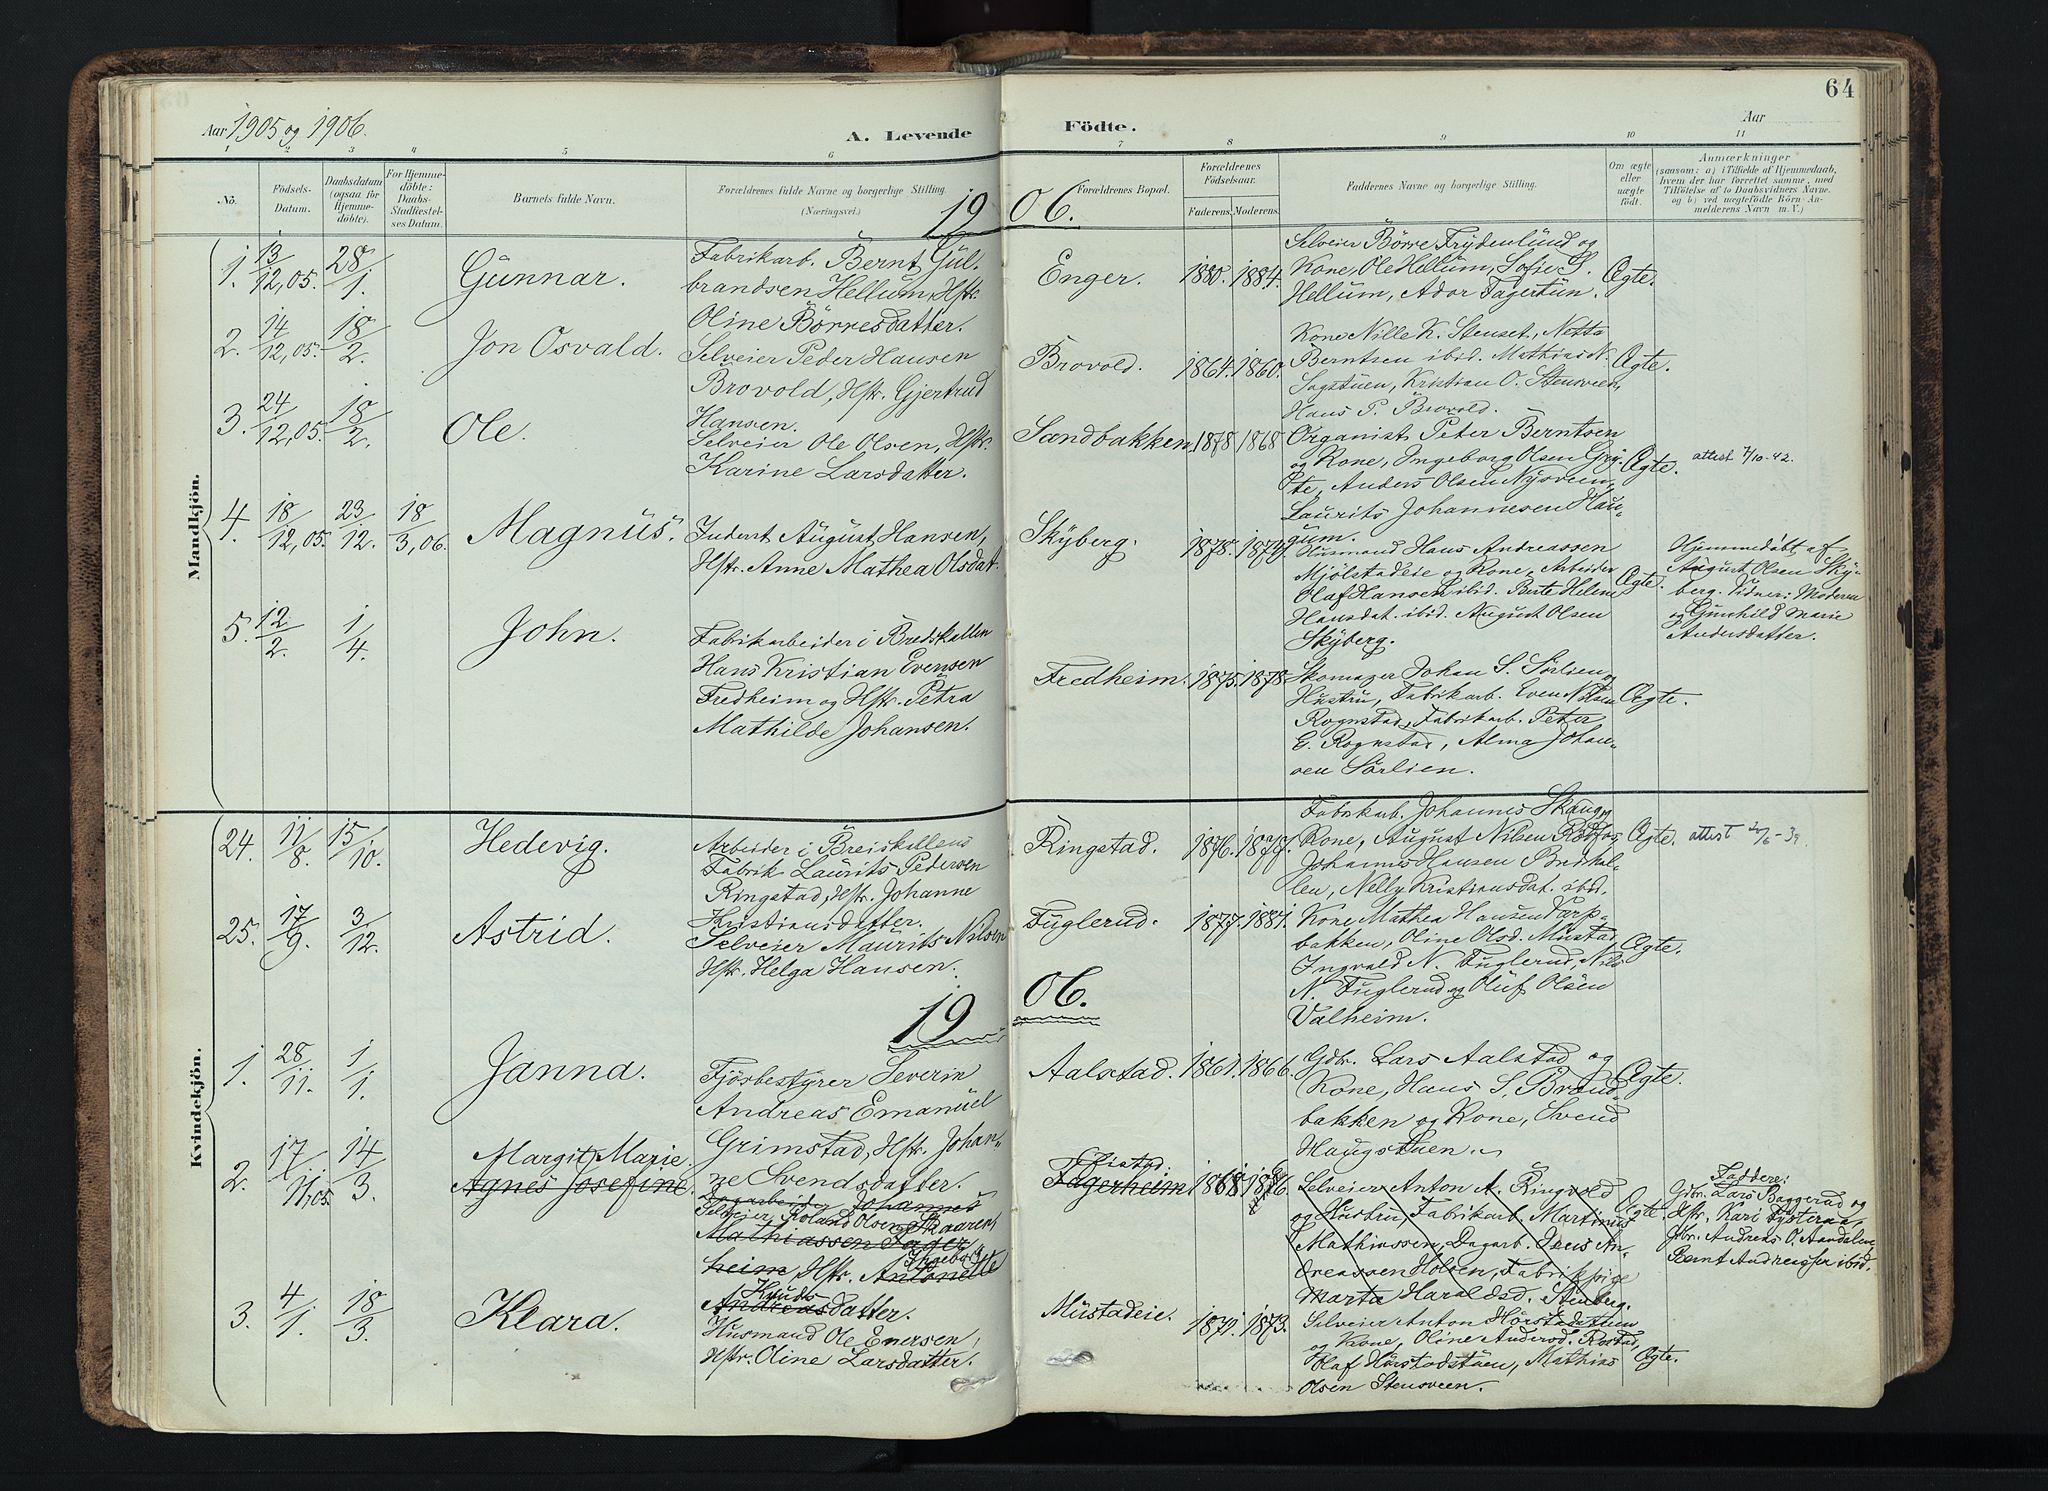 64
Aar 1905 og 1906.
A. Levende Födte.
Aar
1 2 3 4 5 6 7 8 9 10 11
No.
Födsels-
Datum.
Daabsdatum
(ogsaa for
Hjemme-
döbte).
For Hjemme-
döbte:
Daabs-
Stadfæstel-
ses Datum.
Barnets fulde Navn.
Forældrenes fulde Navne og borgerlige Stilling.
(Næringsvei.)
Forældrenes Bopæl.
Forældrenes
Födselsaar.
Faderens. Moderens.
Faddernes Navne og borgerlige Stilling.
Om ægte
eller
uægte
födt.
Anmærkninger
(saasom: a) i Tilfælde af Hjemmedaab,
hvem der har forrettet samme, med
Tilföielse af to Daabsvidners Navne.
og b) ved uægtefödte Börn An-
melderens Navn m. V.)
19 06.
Mandkjön.
1. 13/12,05. 28/1. Gunnar.
Fabrikarb. Bernt Gul-
brandsen Hellum, Hstr.
Oline Börresdatter.
Enger. 1880. 1884.
Selveier Börre Frydenlund og
Kone, Ole Hellum, Sofie S.
Hellum, Ador Fagertun.
Ægte.
2. 14/12,05. 18/2. Jon Osvald.
Selveier Peder Hansen
Brovold, Hstr. Gjertrud
Hansen.
Brovold. 1864. 1860.
Kone Nille K. Stenset, Netta
Berntsen ibid. Mathias N.
Sagstuen, Kristian O. Stensveen,
Hans P. Brovold.
Ægte.
3. 24/12,05. 18/2. Ole.
Selveier Ole Olsen, Hstr.
Karine Larsdatter.
Sandbakken. 1878 1868
Organist Peter Berntsen
og Kone, Ingeborg Olsen Gry-
te, Anders Olsen Nysveen,
Laurits Johannesen Hau-
gum.
Ægte. attest 7/10-42.
4. 18/12,05. 23/12. 18/3,06. Magnus.
Inderst August Hansen,
Hstr. Anne Mathea Olsdat.
Skyberg. 1878. 1874.
Husmand Hans Andreassen
Mjölstadeie og Kone, Arbeider
Olaf Hansen ibid. Berte Helene
Hansdat. ibid. August Olsen
Skyberg.
Ægte.
Hjemmedöbt af
August Olsen Sky-
berg. Vidner: Moderen
og Gunhild Marie
Andersdatter.
5. 12/2. 1/4. John.
Fabrikarbeider i Bredskallen
Hans Kristian Evensen
Fredheim og Hstr. Petra
Mathilde Johansen.
Fredheim. 1875. 1878.
Skomager Johan S. Sörlien og
Hustru, Fabrikarb. Even Nilsen
Rognstad, Fabrikarb. Peter
G. Rognstad, Alma Johan-
sen Sörlien.
Ægte.
Kvindekjön.
24. 11/8. 15/10. Hedevig.
Arbeider i Breiskallens
Fabrik Laurits Pedersen
Ringstad, Hstr. Johanne
Kristiansdatter.
Ringstad. 1876. 1877.
Fabrikarb. Johannes Skaug og
Kone, August Nilsen Rödfos,
Johannes Hansen Bredkal-
len, Nelly Kristiansdat. ibid.
Ægte.
25. 17/9. 3/12. Astrid.
Selveier Maurits Nilsen
Hstr. Helga Hansen.
Fuglerud. 1877. 1881.
Kone Mathea Hansen Varp-
bakken, Oline Olsd. Mustad,
Ingvald N. Fuglerud, Nils
N. Fuglerud og Oluf Olsen
Valheim.
Ægte.
19 06.
1. 28/11. 1/1. Janna.
Fjösbestyrer Severin
Andreas Emanuel
Grimstad, Hstr. Johan-
ne Svendsdatter.
Aalstad. 1861. 1866.
Gdbr. Lars Aalstad og
Kone, Hans S. Brænd-
bakken og Kone, Svend
Haugstuen.
Ægte.
2. 17/11,05. 14/3. Margit Marie.
Agnes Josefine.
Dagarbeider Johannes
Selveier Roland Olsen
Mathiassen Fager-
heim, Hstr. Antonette
Ingeborg
Knuds
Andreasdatter.
Fagerheim
Selveier Anton A. Ringvold
og Hustru, Fabrikarb. Martinus
Mathiassen, Dagarb. Jens An-
dreassen Holsen, Fabrikpige
Marta Haraldsd. Stenberg.
Ægte.
Faddere:
Gdbr. Lars Baggerud og
Hstr. Kari Fysteraa,
Gbr. Andreas O. Aandalen,
Bernt Andreassen ibid.
3. 4/1. 18/3. Klara.
Husmand Ole Enersen,
Hstr. Oline Larsdatter.
Mustadeie. 1871. 1873.
Selveier Anton Hörstadstuen
og Kone, Oline Andersd. Rostad,
Olaf Hörstadstuen, Mathias
Olsen Stensveen.
Ægte.